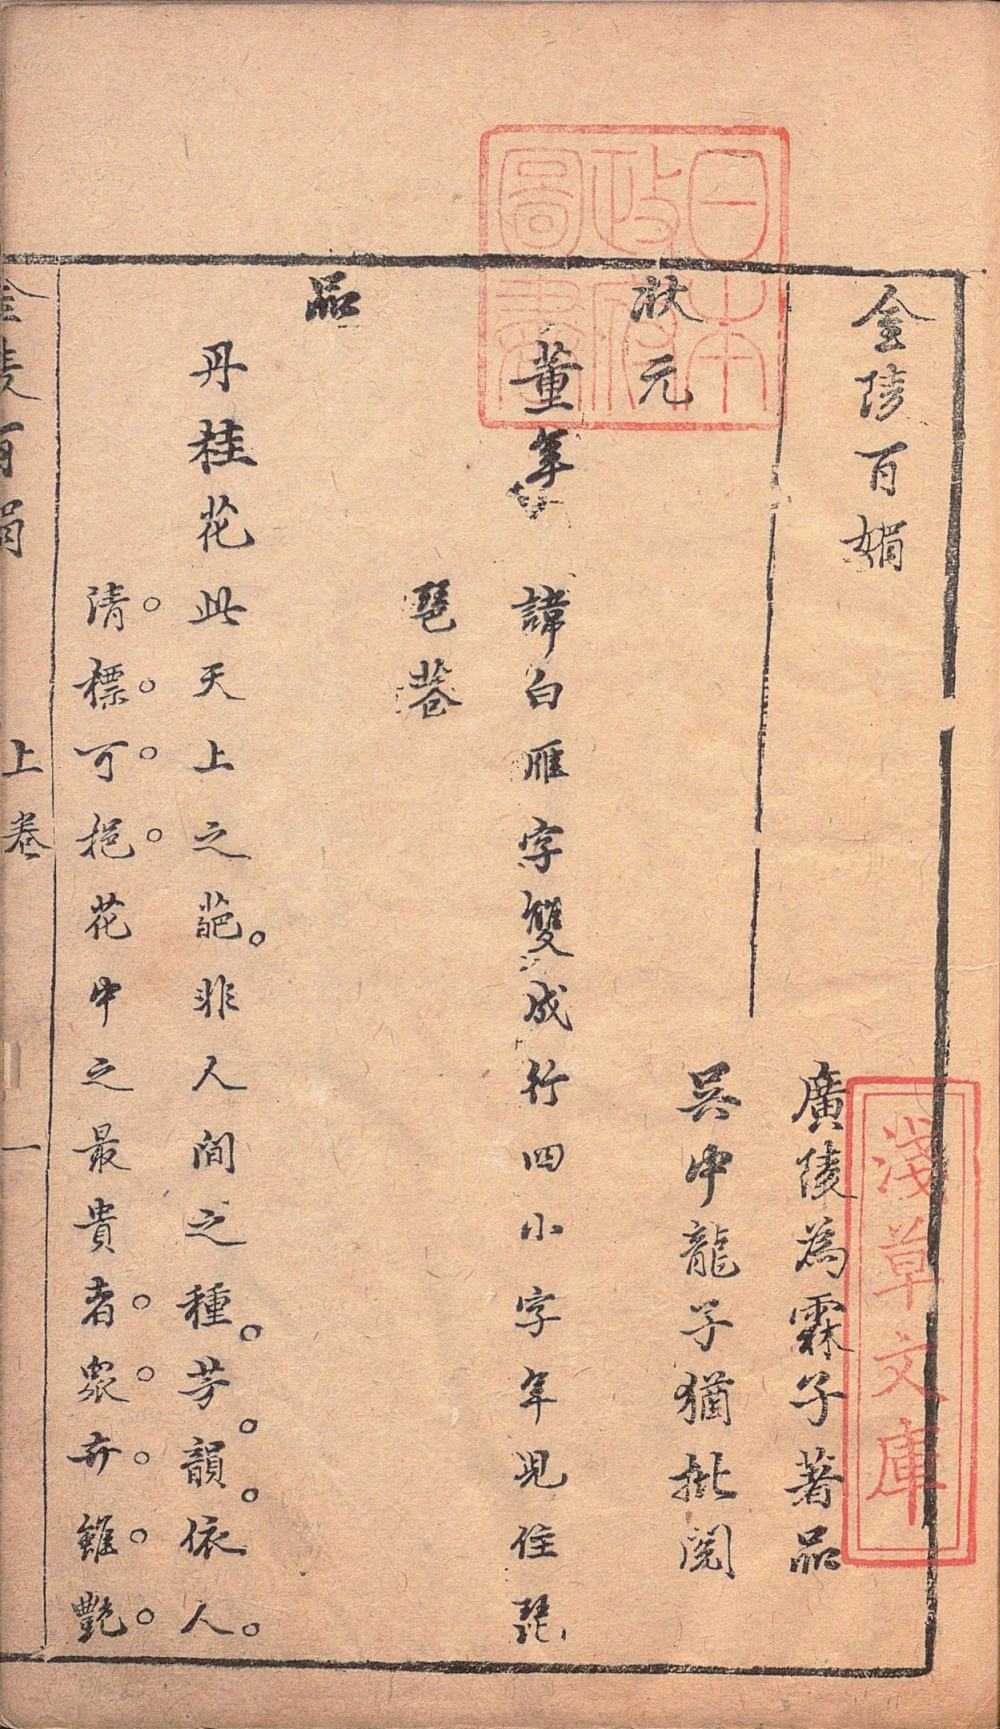 金陵百媚
廣陵為霖子著品
吳中龍子猶批閱
狀元
董年 諱白雁字雙成行四小字年兒住琵
琶巷
品
丹桂花此天上之葩。非人間之種。芳。韻。依人。
清。標。可。挹。花中之最貴者。衆。卉。雖。艷。
金陵百媚 上卷 一
日本政府圖書
淺草文庫